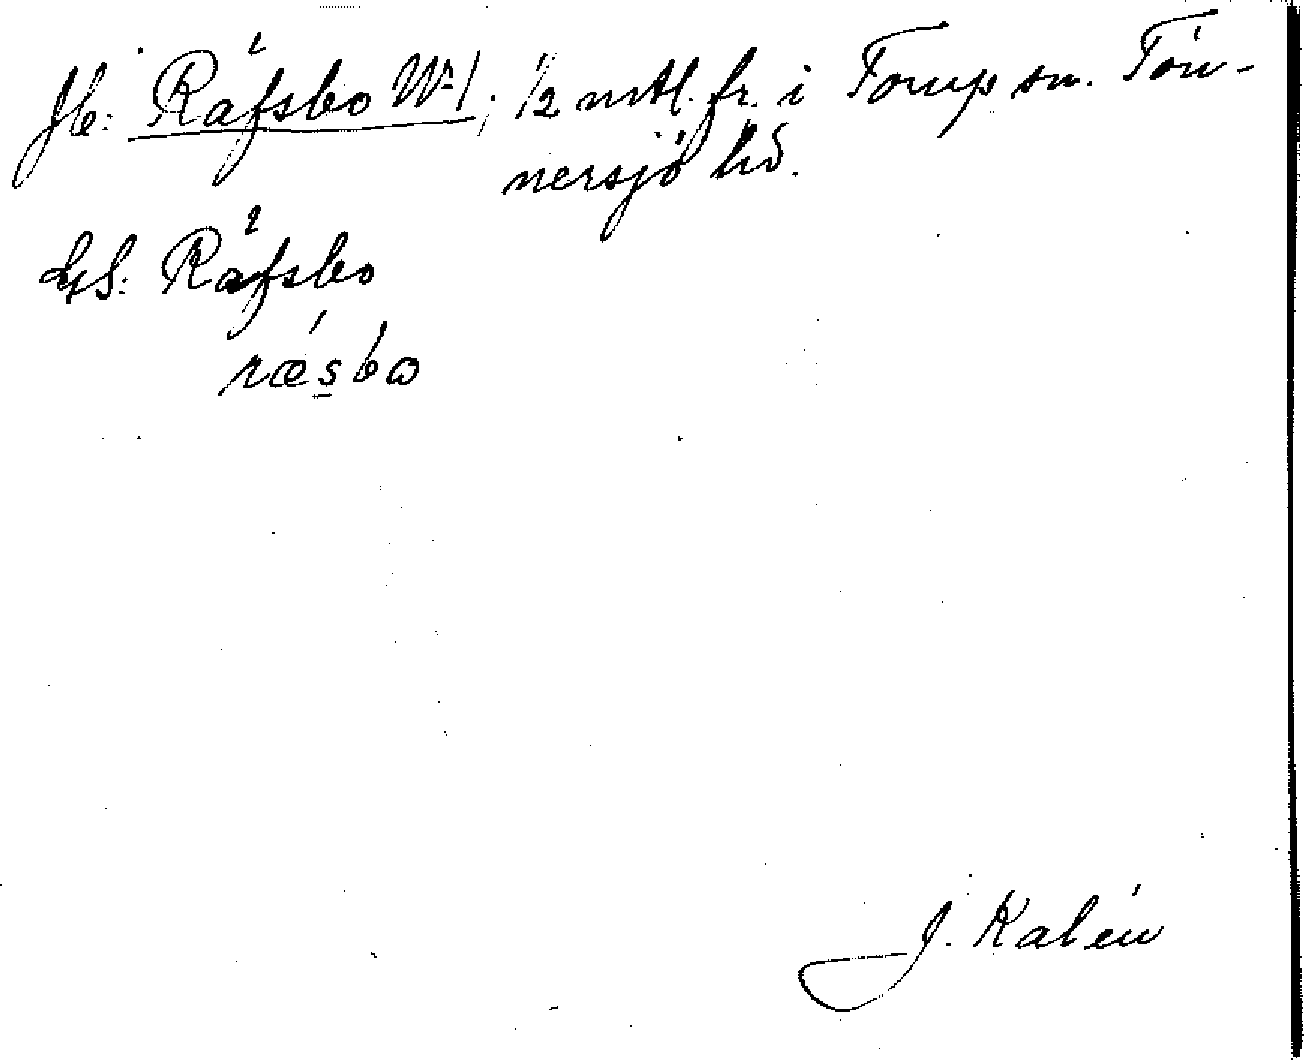 Jb: Räfsbo N:1, 1/2 mtl. fr. i Torup sn. Tön-
nersjö hd.
Räfsbo
ræ´sbo
J. Kalén